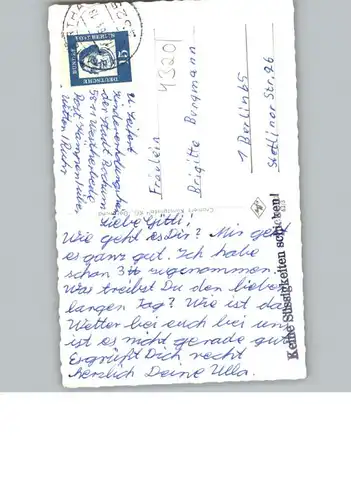 U. Seifert
Kindererholungsheim
der Stadt Bochum
Post Hampenfeld
Witten/Ruhr
43201
Fräulein
Brigitte Bergmann
1 Berlin 65
Stettiner Str. 26
15
DEUTSCHE
Keine Süssigkeiten schicken!
Liebe Gitti!
Wie geht es Dir? Mir geht
es ganz gut. Ich habe
schon 3 zugenommen.
Was treibst Du den lieben
langen Tag? Wie ist das
Wetter bei euch bei uns
ist es nicht gerade gut
Es grüßt Dich recht
herzlich Deine Ulla.